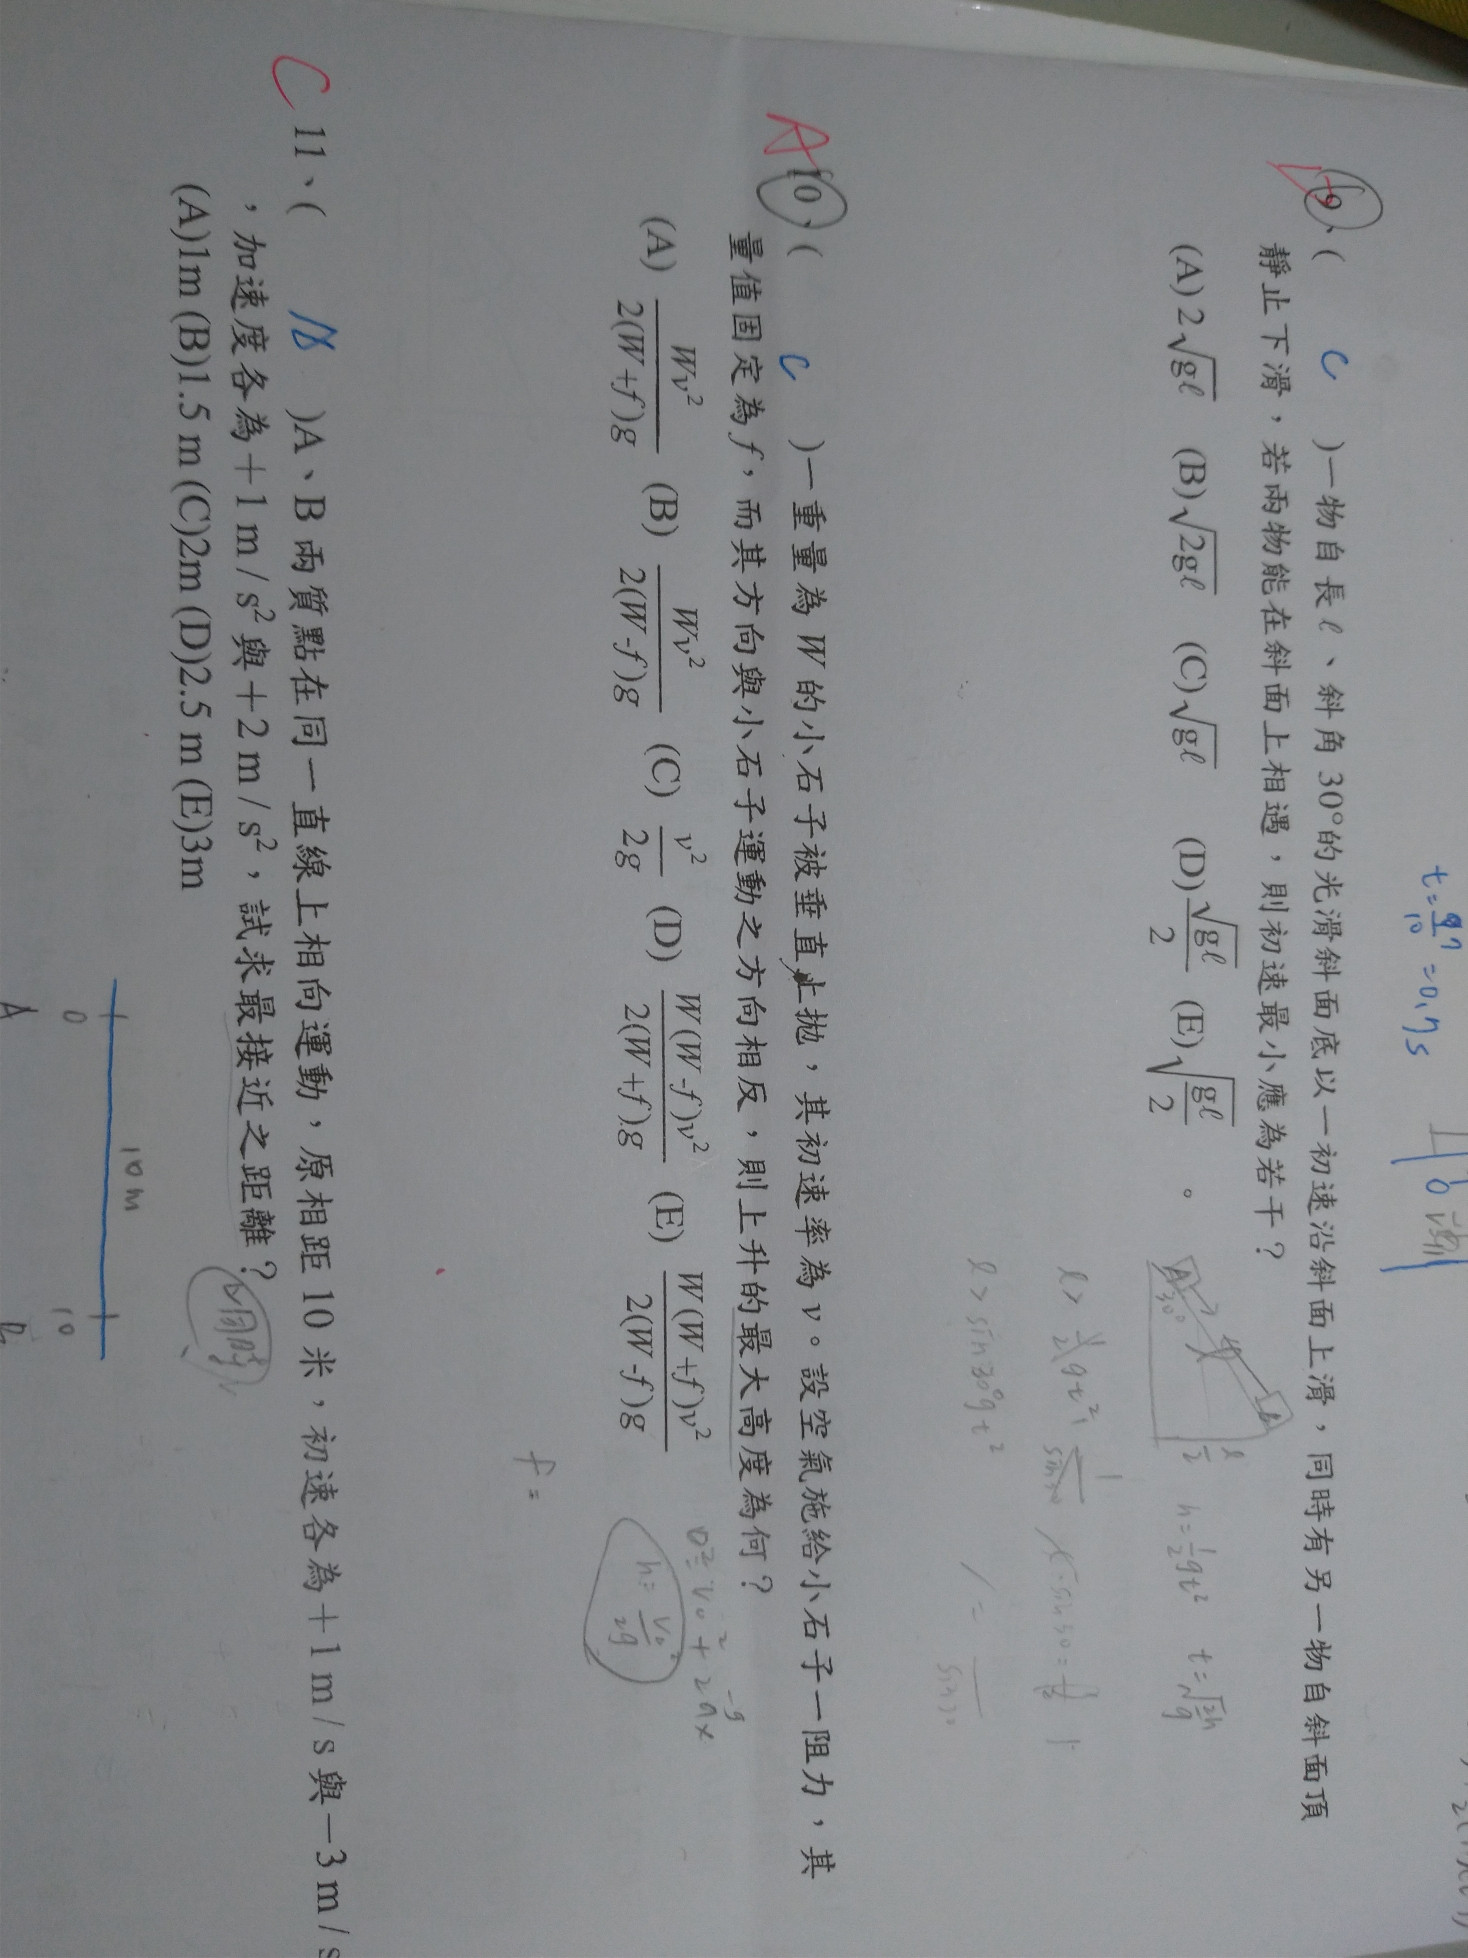 t=η/10=0.ηs
9、( C )一物自長ℓ、斜角30°的光滑斜面底以一初速沿斜面上滑，同時有另一物自斜面頂
靜止下滑，若兩物能在斜面上相遇，則初速最小應為若干？
(A) 2√gℓ (B)√2gℓ (C)√gℓ (D)√gℓ/2 (E)√(gℓ/2) 。
A 30°
h=½gt² t=√(2h/g)
ℓ> ½gt²
ℓ> sin30°gt²
A
10、( C )一重量為W的小石子被垂直上拋，其初速率為v。設空氣施給小石子一阻力，其
量值固定為f，而其方向與小石子運動之方向相反，則上升的最大高度為何？
(A) Wv²/2(W+f)g (B) Wv²/2(W-f)g (C) v²/2g (D) W(W-f)v²/2(W+f)g (E) W(W+f)v²/2(W-f)g
0²=v₀²+2ax
-g
h=v₀²/2g
f=
C
11、( )A、B兩質點在同一直線上相向運動，原相距10米，初速各為+1 m/s與−3 m/s
，加速度各為+1 m/s²與+2 m/s²，試求最接近之距離？
同時
(A)1m (B)1.5 m (C)2m (D)2.5 m (E)3m
10m
0 10
A